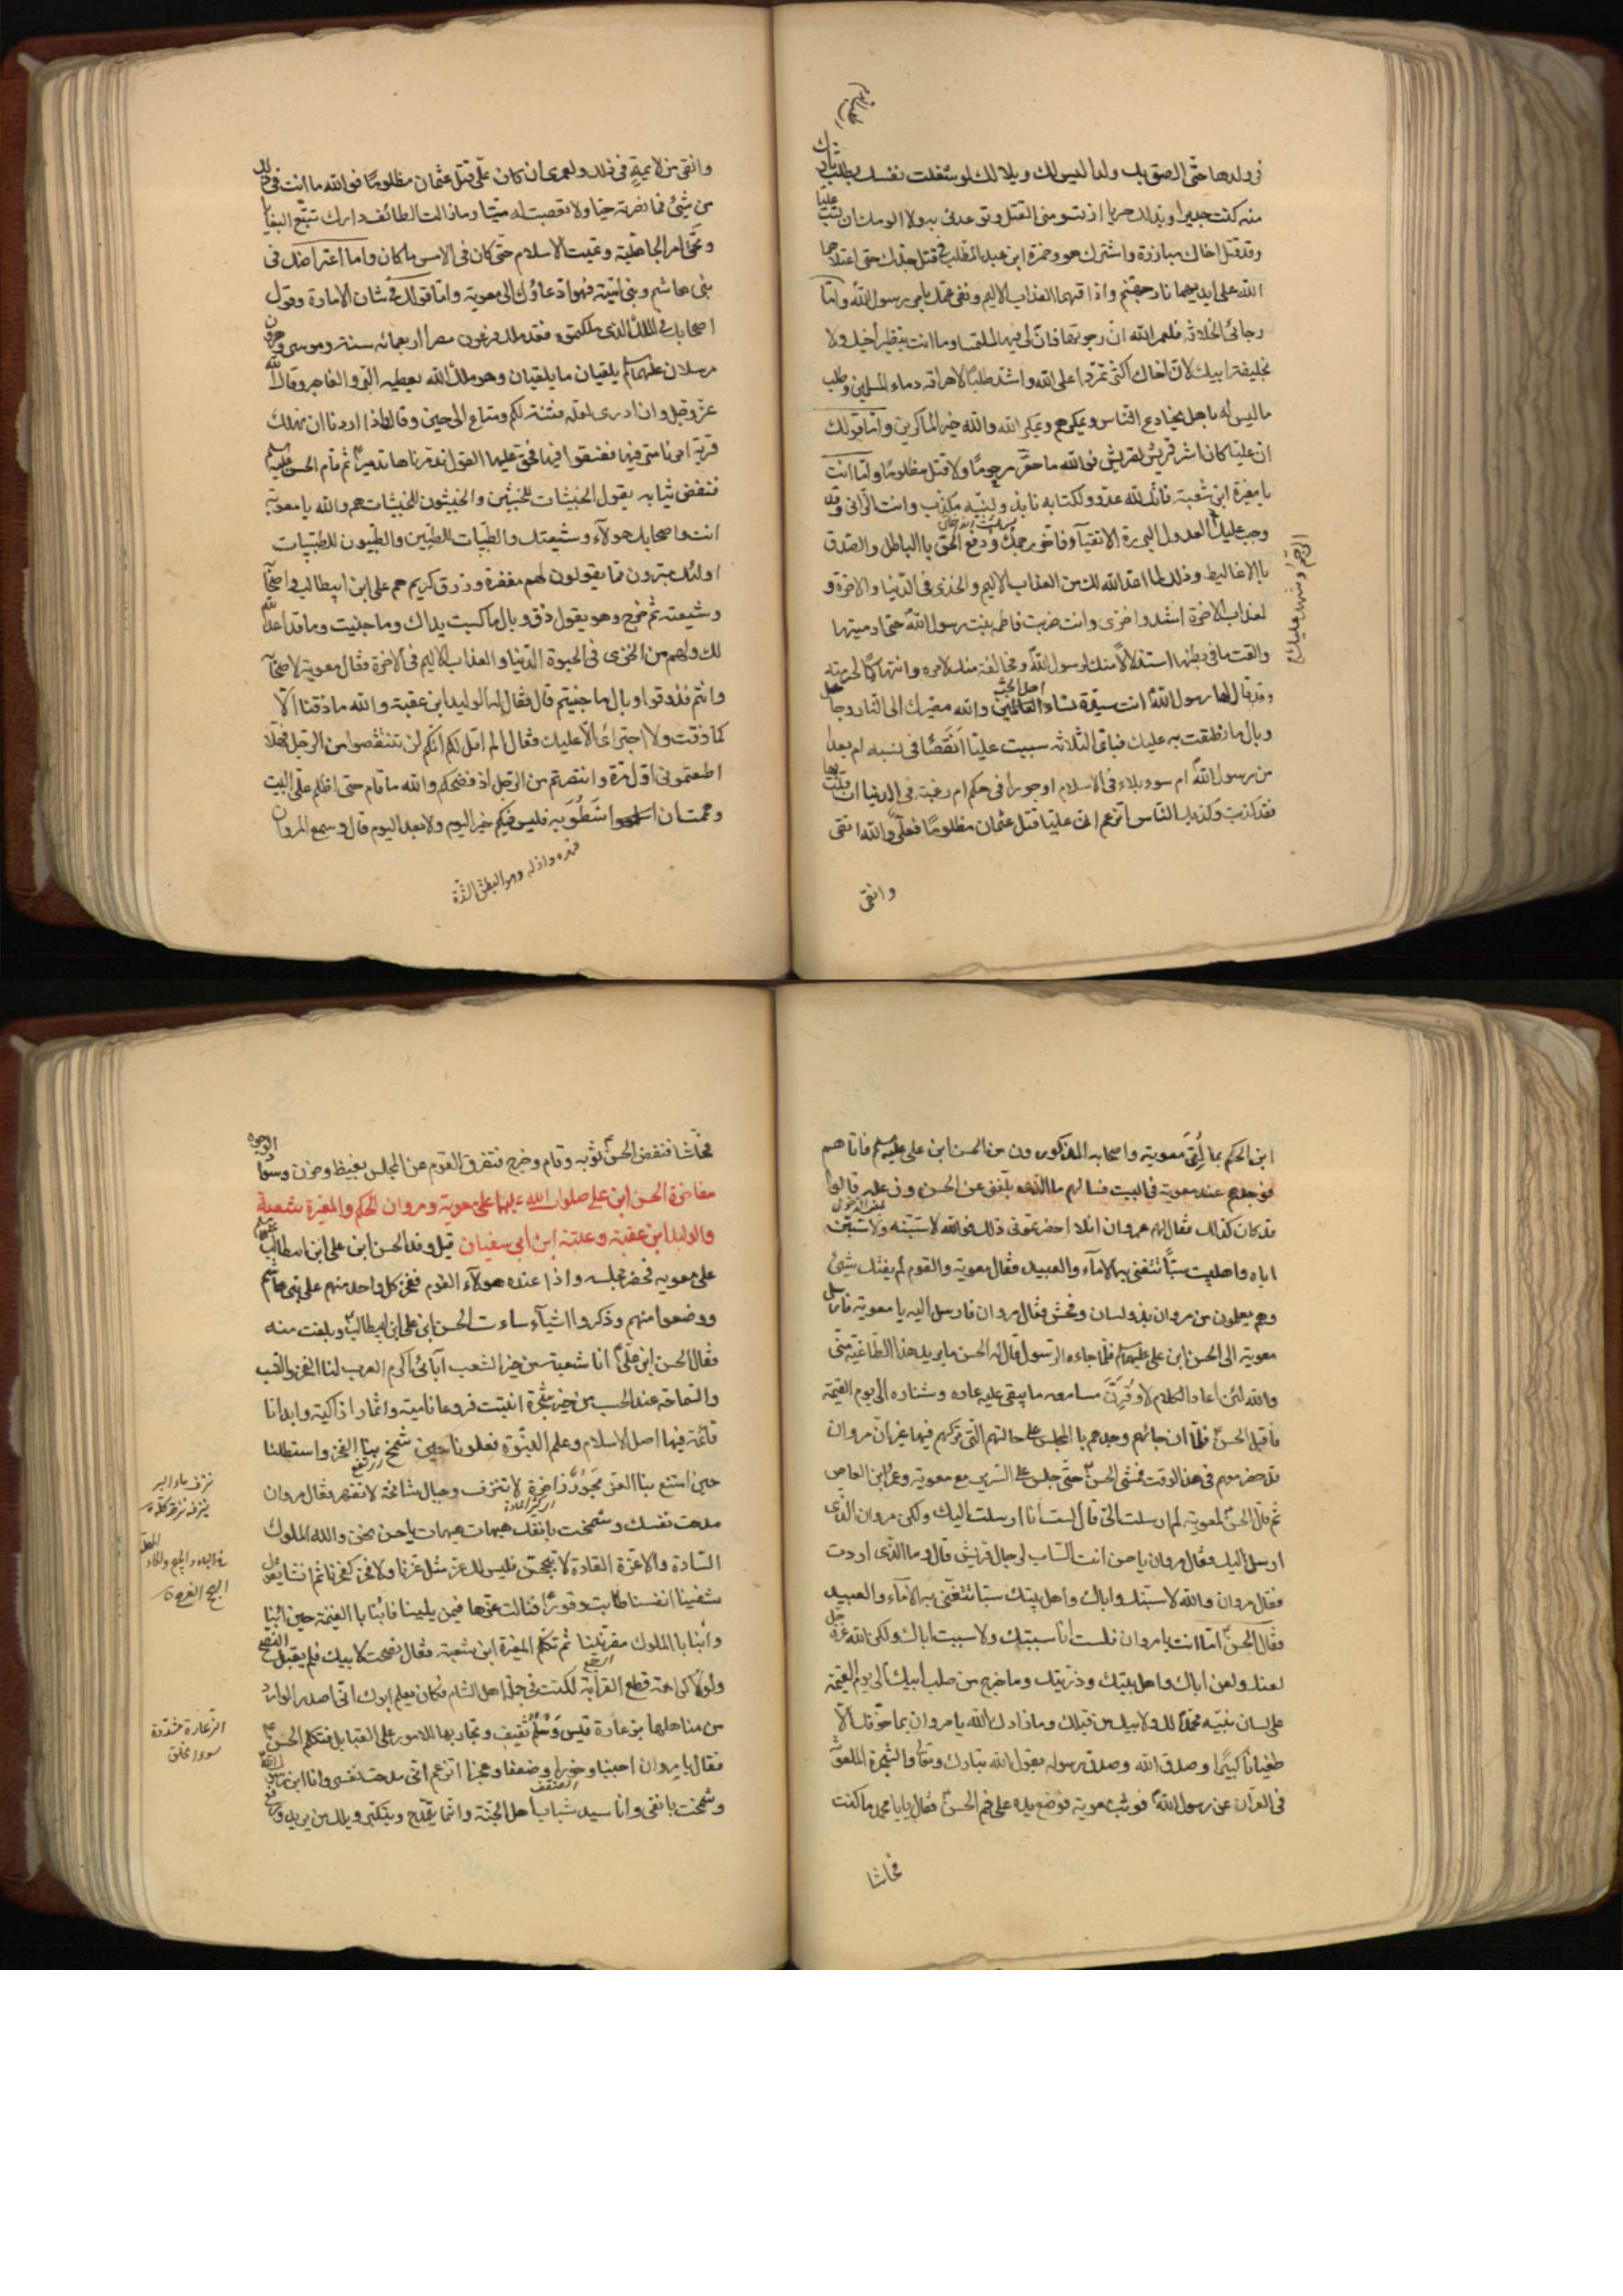 زولدها حتى الصق بك ولدا ليس لك ويلا لك لو شغلت نفسك بطلب ثارك
منه كنت جديرا وبذلك حريا اذ تسومني القتل وتوعدني به ولا الومك ان تسب عليا
وقد قتل اخاك مبارزة واشترك هو وحمزة ابن عبد المطلب في قتل جدك حتى اصلاهما
الله على ايديهما نار جهنم واذاقهما العذاب الاليم ونفى عمك بامر رسول الله واما
رجائي الخلافة فلعمر الله ان رجوتها فان لي فيها لملتمسا وما انت بنظير اخيك ولا
بخليفة ابيك لان اخاك اكثر تمردا على الله واشد طلبا لاهراقه دماء المسلمين وطلب
ما ليس له باهل يخادع الناس ويمكرهم ويمكر الله والله خير الماكرين واما قولك
ان عليا كان اشر قريش لقريش فوالله ما حقر مرحوما ولا قتل مظلوما واما انت
يا مغيرة ابن شعبة فانك لله عدو ولكتابه نابذ ولنبيه مكذب وانت الزاني وقد
وجب عليك العدول البررة الاتقياء فاخر رجمك ودفع الحق بالباطل والصدق
بالاغاليط وذلك لما اعد الله لك من العذاب الاليم والخزي في الدنيا والاخرة و
لعذاب الاخرة اشد واخزى وانت ضربت فاطمة بنت رسول الله حتى ادميتها
والقت ما في بطنها استذلالا منك لرسول الله ومخالفة منك لامره وانتهاكا لحرمته
وقد قال لها رسول الله انت سيدة نساء اهل الجنة والله مصيرك الى النار وجاعل
وبال ما نطقت به عليك فباي الثلاثة سببت عليا انقصا في نسبه ام بعدا
من رسول الله ام سوء بلاء في الاسلام او جورا في حكم ام رغبة في الدنيا ان قلت بها
فقد كذبت وكذبك الناس اتزعم ان عليا قتل عثمان مظلوما فعلي والله اتقى
وانقى
الرجم وشهد عليك
وانقى من لائمة في ذلك ولعمري ان كان علي قتل عثمان مظلوما فوالله ما انت في ذلك
من شيء فما نصرته حيا ولا تعصبت له ميتا وما زالت الطائف دارك تتبع البغايا
وتحيي امر الجاهلية وتميت الاسلام حتى كان في الامس ما كان واما اعتراضك في
بني هاشم وبني امية فهو ادعاؤك الى معوية واما قولك في شان الامارة وقول
اصحابك في الملك الذي ملكتموه فقد ملك فرعون مصر اربعمائة سنة وموسى وهرون
مرسلان عليهما السلام يلقيان ما يلقيان وهو ملك الله يعطيه البر والفاجر وقال الله
عز وجل وان ادري لعله فتنة لكم ومتاع الى حين وقال واذا اردنا ان نهلك
قرية امرنا مترفيها ففسقوا فيها فحق عليها القول فدمرناها تدميرا ثم قام الحسن عليه السلم
فنفض ثيابه يقول الخبيثات للخبيثين والخبيثون للخبيثات هم والله يا معوية
انت واصحابك هولاء وشيعتك والطيبات للطيبين والطيبون للطيبات
اولئك مبرون مما يقولون لهم مغفرة ورزق كريم هم علي ابن ابيطالب واصحابه
وشيعته ثم خرج وهو يقول ذق وبال ما كسبت يداك وما جنيت وما قد اعد الله
لك ولهم من الخزي في الحيوة الدنيا والعذاب الاليم في الاخرة فقال معوية لاصحابه
وانتم فذوقوا وبال ما جنيتم قال فقال له الوليد ابن عقبة والله ما ذقنا الا
كما ذقت ولا اجترائ الا عليك فقال الم اقل لكم انكم لن تنتقصوا من الرجل فهلا
اطعتموني اول مرة وانتصرتم من الرجل اذ فضحكم والله ما قام حتى اظلم علي البيت
وهممت ان اسطو به فليس فيكم خير اليوم ولا بعد اليوم قال وسمع المروان
قهره واذله وهو البطش الشدة
ابن الحكم بما لقي معوية واصحابه المذكورون من الحسن ابن علي عليه السلم فاتاهم
فوجدهم عند معوية في البيت فسالهم ما الذي بلغني عن الحسن وزعله قالوا
قد كان كذلك فقال لهم مروان افلا احضرتموني ذلك فوالله لاسبنه ولاسبن
اباه واهلبيت سبا تتغنى به الاماء والعبيد فقال معوية والقوم لم يفتك شيئ
وهم يعلمون من مروان بذو لسان وفحش فقال مروان فارسل اليه يا معوية فارسل
معوية الى الحسن ابن علي عليهما السلم فلما جاءه الرسول قال له الحسن ما يريد هذا الطاغية مني
والله لئن اعاد الكلام لاوقرن مسامعه ما يبقى عليه عاره وشناره الى يوم القيمة
فاقبل الحسن فلما ان جائهم وجدهم بالمجلس على حالتهم التي تركهم فيها غير ان مروان
قد حضر معهم في هذا الوقت فمشى الحسن حتى جلس على السرير مع معوية وعمرو ابن العاص
ثم قال الحسن لمعوية لم ارسلت الي قال لست انا ارسلت اليك ولكن مروان الذي
ارسل اليك فقال مروان يا حسن انت الساب لرجال قريش قال وما الذي اردت
فقال مروان والله لاسبنك واباك واهل بيتك سبا تتغنى به الاماء والعبيد
فقال الحسن اما انت يا مروان فلست انا سببتك ولا سببت اباك ولكن الله عز وجل
لعنك ولعن اباك واهل بيتك وذريتك وما خرج من صلب ابيك الى يوم القيمة
على لسان نبيه محمد لك ولابيك من قبلك وما زادك الله يا مروان بما خوفك الا
طغيانا كبيرا وصدق الله وصدق رسوله يقول الله تبارك وتعالى والشجرة الملعونة
في القرآن عن رسول الله فوثب معوية فوضع يده على فم الحسن فقال يا با محمد ما كنت
فحاشا
فحاشا فنفض الحسن ثوبه وقام وخرج فتفرق القوم عن المجلس بغيظ وحزن وسواد الوجوه
مفاخرة الحسن ابن علي صلوات الله عليهما على معوية ومروان الحكم والمغيرة بشعبة
والوليد ابن عقبة وعتبة ابن ابي سفيان قيل وفد الحسن ابن علي ابن ابيطالب عليهما
على معويه فحضر مجلسه واذا عنده هولاء القوم ففخر كل واحد منهم على بني هاشم
ووضعوا منهم وذكروا اشياء ساءت الحسن ابن علي ابن ابيطالب وبلغت منه
فقال الحسن ابن علي انا شعبة من خير الشعب آبائي اكرم العرب لنا الفخر والنسب
والسماحة عند الحسب من خير شجرة انبتت فروعا نامية واثمارا زاكية وابدانا
قائمة فيها اصل الاسلام وعلم النبوة فعلونا حين شمخ بنا الفخر واستطلنا
حين امتنع بنا العز بحور زاخرة لا تنزف وجبال شامخة لا تقهر فقال مروان
مدحت نفسك وشمخت بانفك هيهات هيهات يا حسن نحن والله الملوك
السادة والاعزة القادة لا تبجحن فليس لك عز مثل عزنا ولا فخر كفخرنا ثم انشا يقول
شفينا انفسنا طابت وقورا فنالت عزها فيمن يلينا فابنا بالغنيمة حين ابنا
وابنا بالملوك مقرنينا ثم تكلم المغيرة ابن شعبة فقال نصحت لابيك فلم يقبل النصح
ولولا كراهة قطع القرابة لكنت في جملة اهل الشام فكان يعلم ابوك اني اصدر الوارد
من مناهلها بزعارة قيس وحلم ثقيف وتجاربها للامور على القبايل فتكلم الحسن
فقال يا مروان اجبنا وخورا وضعفا وعجزا اتزعم اني مدحت نفسي وانا ابن رسول الله
وشمخت بانفي وانا سيد شباب اهل الجنة وانما يبذخ ويتكبر ويلك من يريد رفع
نزف ماء البئر
ينزفه نزفا نزحه كله
البجح الفرح
الزعارة مشددة
سوء الخلق